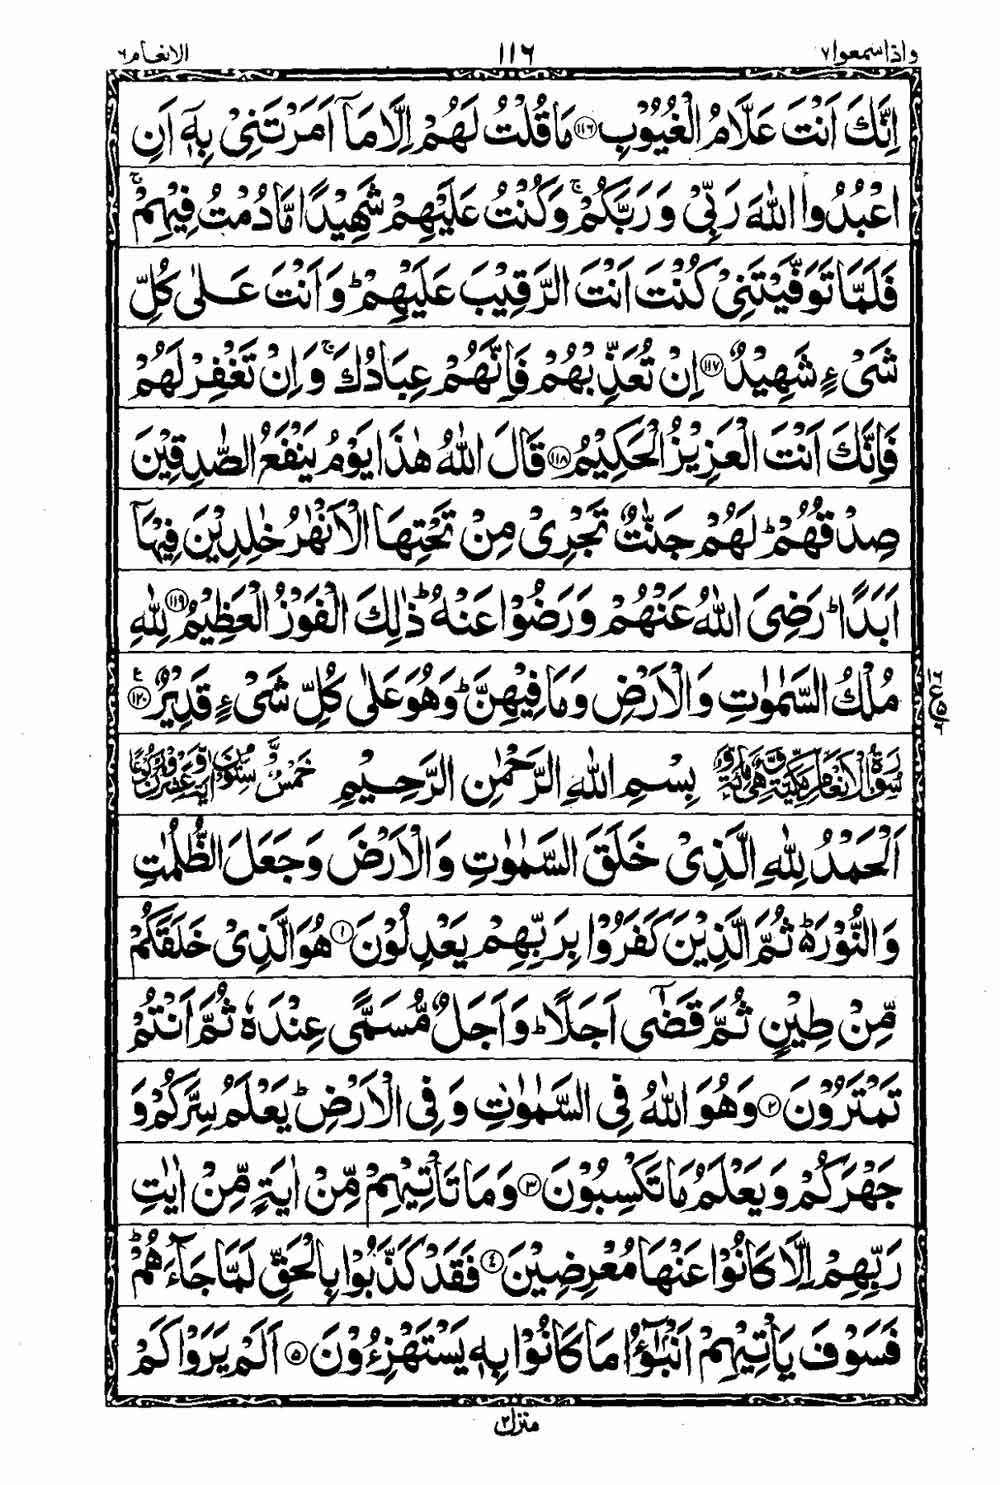 واذا سمعوا ٧ ١١٦ الانعام ٦
اِنَّكَ اَنْتَ عَلَّامُ الْغُيُوْبِ ۝١١٦ مَا قُلْتُ لَهُمْ اِلَّا مَاۤ اَمَرْتَنِيْ بِهٖۤ اَنِ
اعْبُدُوا اللّٰهَ رَبِّيْ وَرَبَّكُمْ ۚ وَكُنْتُ عَلَيْهِمْ شَهِيْدًا مَّا دُمْتُ فِيْهِمْ ۚ
فَلَمَّا تَوَفَّيْتَنِيْ كُنْتَ اَنْتَ الرَّقِيْبَ عَلَيْهِمْ ؕ وَاَنْتَ عَلٰى كُلِّ
شَيْءٍ شَهِيْدٌ ۝١١٧ اِنْ تُعَذِّبْهُمْ فَاِنَّهُمْ عِبَادُكَ ۚ وَاِنْ تَغْفِرْ لَهُمْ
فَاِنَّكَ اَنْتَ الْعَزِيْزُ الْحَكِيْمُ ۝١١٨ قَالَ اللّٰهُ هٰذَا يَوْمُ يَنْفَعُ الصّٰدِقِيْنَ
صِدْقُهُمْ ؕ لَهُمْ جَنّٰتٌ تَجْرِيْ مِنْ تَحْتِهَا الْاَنْهٰرُ خٰلِدِيْنَ فِيْهَاۤ
اَبَدًا ؕ رَضِيَ اللّٰهُ عَنْهُمْ وَرَضُوْا عَنْهُ ؕ ذٰلِكَ الْفَوْزُ الْعَظِيْمُ ۝١١٩ لِلّٰهِ
مُلْكُ السَّمٰوٰتِ وَالْاَرْضِ وَمَا فِيْهِنَّ ؕ وَهُوَ عَلٰى كُلِّ شَيْءٍ قَدِيْرٌ ۝١٢٠ ع
سُوْرَةُ الْاَنْعَامِ مَكِّيَّةٌ وَّهِيَ مِائَةٌ وَّ بِسْمِ اللّٰهِ الرَّحْمٰنِ الرَّحِيْمِ خَمْسٌ وَّسِتُّوْنَ اٰيَةً وَّعِشْرُوْنَ رُكُوْعًا
اَلْحَمْدُ لِلّٰهِ الَّذِيْ خَلَقَ السَّمٰوٰتِ وَالْاَرْضَ وَجَعَلَ الظُّلُمٰتِ
وَالنُّوْرَ ؕ۬ ثُمَّ الَّذِيْنَ كَفَرُوْا بِرَبِّهِمْ يَعْدِلُوْنَ ۝١ هُوَ الَّذِيْ خَلَقَكُمْ
مِّنْ طِيْنٍ ثُمَّ قَضٰۤى اَجَلًا ؕ وَاَجَلٌ مُّسَمًّى عِنْدَهٗ ثُمَّ اَنْتُمْ
تَمْتَرُوْنَ ۝٢ وَهُوَ اللّٰهُ فِي السَّمٰوٰتِ وَفِي الْاَرْضِ ؕ يَعْلَمُ سِرَّكُمْ وَ
جَهْرَكُمْ وَيَعْلَمُ مَا تَكْسِبُوْنَ ۝٣ وَمَا تَاْتِيْهِمْ مِّنْ اٰيَةٍ مِّنْ اٰيٰتِ
رَبِّهِمْ اِلَّا كَانُوْا عَنْهَا مُعْرِضِيْنَ ۝٤ فَقَدْ كَذَّبُوْا بِالْحَقِّ لَمَّا جَآءَهُمْ ؕ
فَسَوْفَ يَاْتِيْهِمْ اَنْۢبٰٓؤُا مَا كَانُوْا بِهٖ يَسْتَهْزِءُوْنَ ۝٥ اَلَمْ يَرَوْا كَمْ
منزل ٢